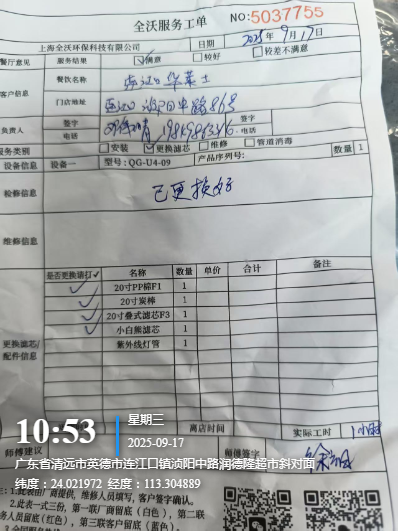 全沃服务工单
NO:5037755
上海全沃环保科技有限公司 日期 2025年9月17日
餐厅意见 服务结果 满意 较好 较差不满意
客户信息 餐饮名称 连江口华莱士
门店地址
负责人 签字 签字
电话 电话
服务类别 安装 更换滤芯 维修 管道消毒 数量 1
设备信息 设备一 型号:QG-U4-09 产品序列号:
检修信息 已更换好
维修信息
是否更换请打✓ 名称 数量 单价 合计 备注
✓ 20寸PP棉F1 1
✓ 20寸炭棒 1
✓ 20寸叠式滤芯F3 1
✓ 小白熊滤芯 1
紫外线灯管 1
更换滤芯/
配件信息
离店时间 实际工时 1小时
师傅建议 师傅签字
10:53
星期三
2025-09-17
广东省清远市英德市连江口镇浈阳中路润德隆超市斜对面
纬度:24.021972 经度:113.304889
注:1.此表由厂商提供,维修人员填写,客户签字确认。
2.此表一式三份,第一联厂商留底(白色),第二联